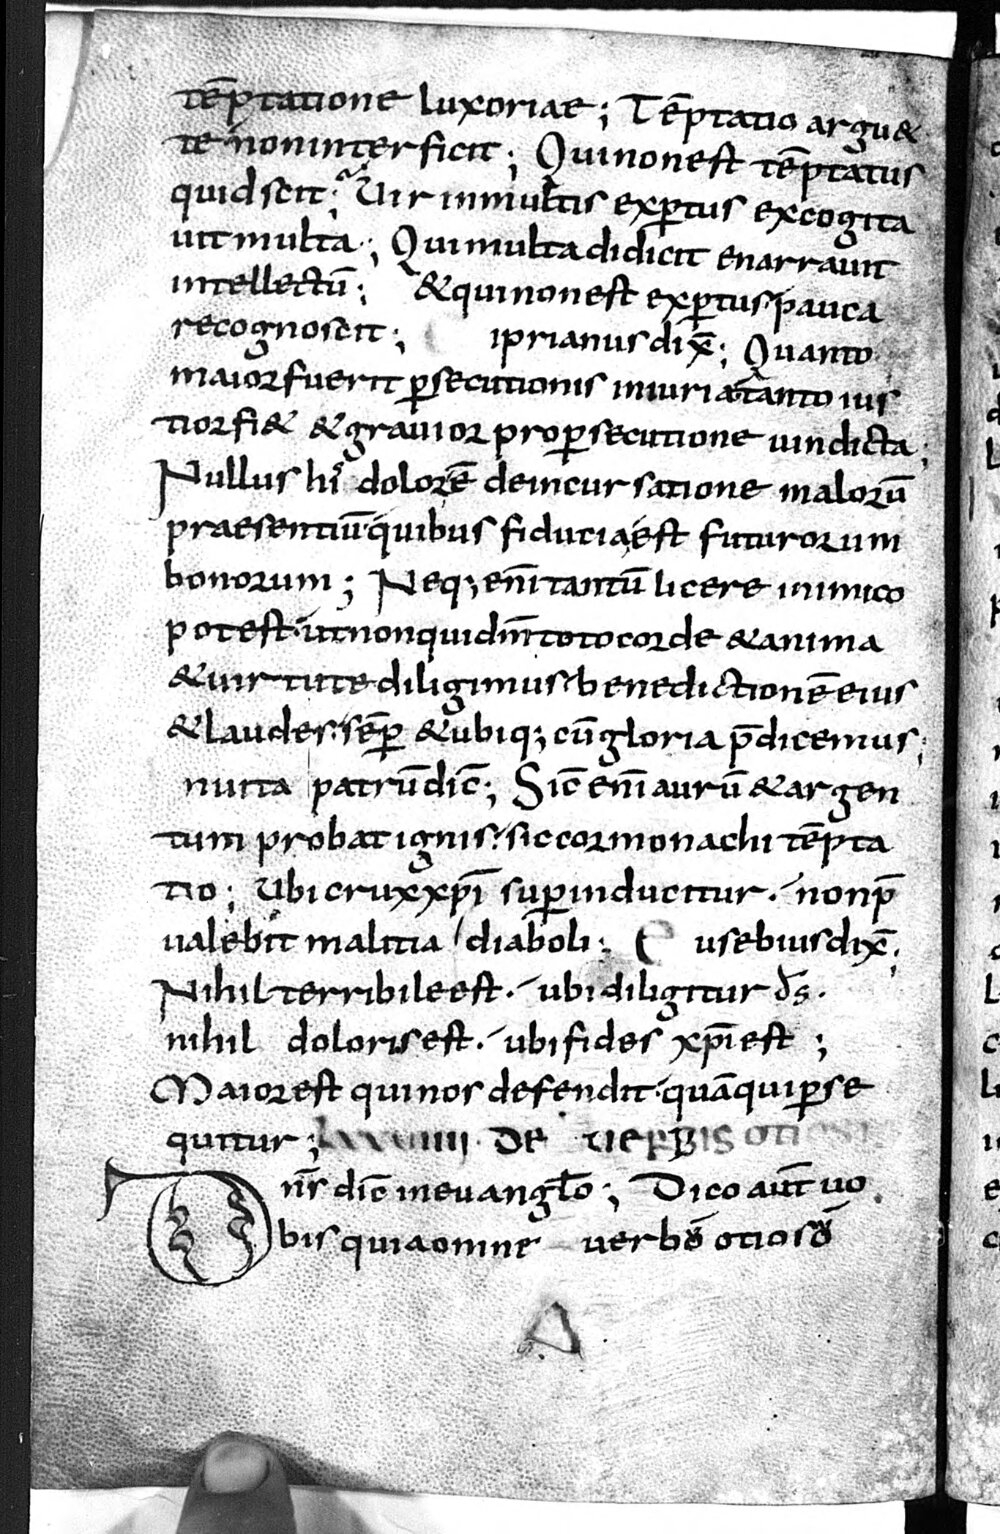 tēptatione luxoriae; Tēptatio argu&
te non interficit; Qui non est tēptatus
quid scit; Uir in multis exptus excogita
uit multa; Qui multa didicit enarrauit
intellectū; & qui non est exptus pauca
recognoscit; iprianus dix̄; Quanto
maior fuerit psecutionis iniuria tanto ius
tior fi& & grauior pro psecutione uindicta;
Nullus his dolorē de incursatione malorū
praesentiū quibus fiducia est futurorum
bonorum; Neq; enī tantū licere inimico
potest ut non qui dn̄m toto corde & anima
& uirtute diligimus benedictionē eius
& laudes sēp & ubiq; cū gloria p̄dicemus;
nuita patrū dic̄; Sic enī aurū & argen
tum probat ignis. sic cor monachi tēpta
tio; Ubi crux xpī supinducitur. non p̄
ualebit malitia diaboli; e usebius dix̄;
Nihil terribile est. ubi diligitur d̄s.
nihil doloris est. ubi fides xpī est;
Maior est qui nos defendit quā qui pse
quitur; lxxuiiii. DE UERBIS OTIOSIS
Dn̄s dic̄ in euanglo; Dico aut̄ uo
bis quia omne uerbū otiosū